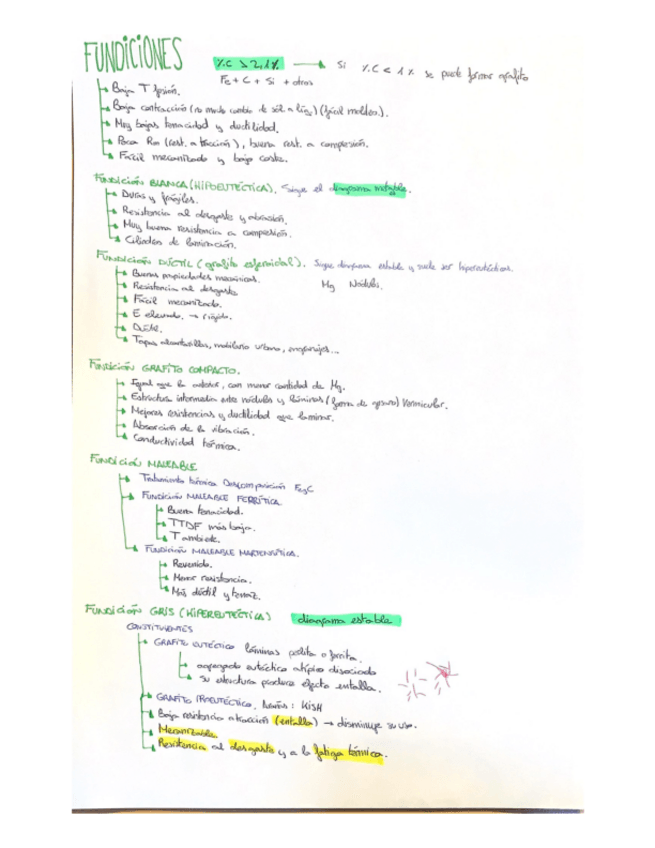 FUNDICIONES %C > 2,1% → Si %C < 1% se puede formar grafito
Fe + C + Si + otros
Baja T fusión.
Baja contracción (no mucho cambio de sól a líq) (fácil moldeo).
Muy bajas tenacidad y ductilidad.
Poca Rm (rest. a tracción), buena rest. a compresión.
Fácil mecanizado y bajo coste.
FUNDICIÓN BLANCA (HIPOEUTÉCTICA). Sigue el diagrama metaestable.
Duras y frágiles.
Resistencia al desgaste y abrasión.
Muy buena resistencia a compresión.
Cilindros de laminación.
FUNDICIÓN DÚCTIL (grafito esferoidal). Sigue diagrama estable y suele ser hipereutécticas.
Buenas propiedades mecánicas. Mg Nódulos.
Resistencia al desgaste
Fácil mecanizado.
E elevado. → rígido.
Dúctil.
Tapas alcantarillas, mobiliario urbano, engranajes...
FUNDICIÓN GRAFITO COMPACTO.
Igual que la anterior, con menor cantidad de Mg.
Estructura intermedia entre nódulos y láminas (forma de gusano) Vermicular.
Mejores resistencias y ductilidad que laminar.
Absorción de la vibración.
Conductividad térmica.
FUNDICIÓN MALEABLE
Tratamiento térmico Descomposición Fe3C
FUNDICIÓN MALEABLE FERRÍTICA
Buena tenacidad.
TTDF más baja.
T ambiente.
FUNDICIÓN MALEABLE MARTENSÍTICA.
Revenido.
Menor resistencia.
Más dúctil y tenaz.
FUNDICIÓN GRIS (HIPEREUTÉCTICA) diagrama estable
CONSTITUYENTES
GRAFITO EUTÉCTICO láminas perlita o ferrita.
agregado eutéctico atípico disociado
su estructura produce efecto entalla.
GRAFITO PROEUTÉCTICO. : KISH
Baja resistencia a tracción (entalla) → disminuye su uso.
Mecanizable.
Resistencia al desgaste y a la fatiga térmica.